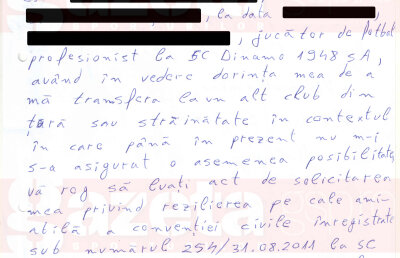 , la data
, jucător de fotbal
profesionist la SC Dinamo 1948 SA,
având în vedere dorința mea de a
mă transfera la un alt club din
țară sau străinătate în contextul
în care până în prezent nu m-i
s-a asigurat o asemenea posibilitate,
vă rog să luați act de solicitarea
mea privind rezilierea pe cale ami-
abilă a convenției civile înregistrate
sub numărul 254/31.08.2011 la SC